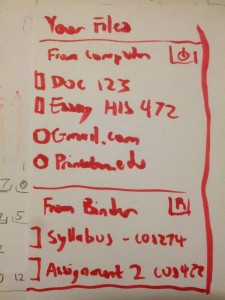 Your Files
From Computer
Doc 123
Essay HIS 472
Gmail.com
Princeton.edu
From Binder A
Syllabus - COS274
Assignment 2 COS422
0
5
0 12